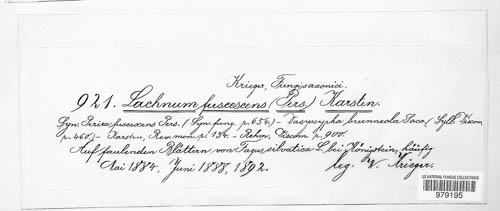 Krieger, Fungi saxonici.
921. Lachnum fuscescens (Pers.) Karsten.
Syn. Peziza fuscescens Pers. (Syn. fung. p. 654.) - Dasyscypha brunneola Sacc. (Syll. Discom.
p. 460.) - Karsten, Rev. mon. p. 134. - Rehm, Discom. p. 900.
Auf faulenden Blättern von Fagus silvatica L. bei Königstein, häufig
Mai 1884. Juni 1888, 1892. leg. W. Krieger.
US NATIONAL FUNGUS COLLECTIONS
979195